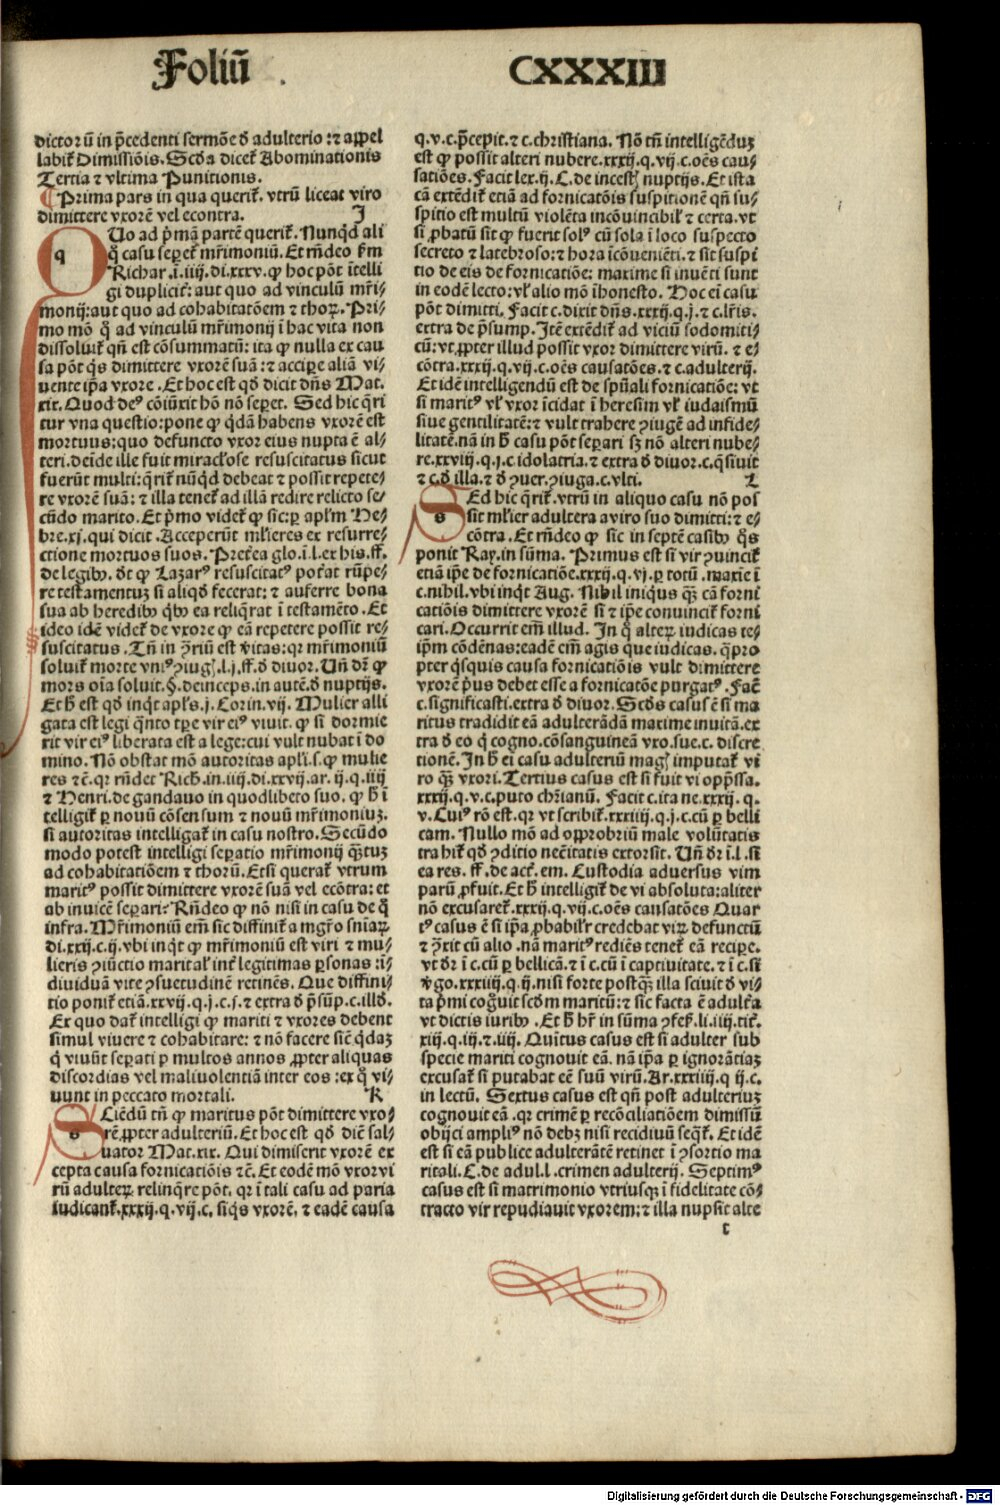 Foliū . CXXXIII
dictorū in p̄cedenti sermōe ď adulterio : ⁊ appel
labit᷑ Dimissiōis. Scďa dicet᷑ Abominationis
Tertia ⁊ vltima Punitionis.
¶ Prima pars in qua querit᷑. vtrū liceat viro
dimittere vxorē vel econtra. I
QUo ad p̄mā partē querit᷑. Nunqͥd ali
qͦ casu sepet᷑ mr̄imoniū. Et rn̄deo ẜm
Richar .ī.iiij.di.xxxv. ꝙ hoc pōt ītelli
gi duplicit᷑: aut quo ad vinculū mr̄i⸗
monij: aut quo ad cohabitatōem ⁊ thoꝝ. Pri⸗
mo mō qͦ ad vinculū mr̄imonij ī hac vita non
dissoluit᷑ qn̄ est cōsummatū: ita ꝙ nulla ex cau
sa pōt qͥs dimittere vxorē suā: ⁊ accipe aliā vi⸗
uente ip̄a vxore. Et hoc est qď dicit dn̄s Mat.
xix. Quod deꝰ cōiūxit hō nō sepet. Sed hic qͥri
tur vna questio: pone ꝙ qͥdā habens vxorē est
mortuus: quo defuncto vxor eius nupta ē al⸗
teri. deīde ille fuit miracľose resuscitatus sicut
fuerūt multi: qͥrit᷑ nūqͥd debeat ⁊ possit repete⸗
re vxorē suā: ⁊ illa tenet᷑ ad illā redire relicto se⸗
cūdo marito. Et pͥmo videt᷑ ꝙ sic: ꝑ apľm He⸗
bre.xj. qui dicit. Acceperūt ml̄ieres ex resurre⸗
ctione mortuos suos. Pret̄ea glo.ī.l. ex his. ff.
de legibꝰ. ďt ꝙ Lazarꝰ resuscitatꝰ poťat rūpe⸗
re testamentuꝫ si aliqď fecerat: ⁊ auferre bona
sua ab heredibꝰ qͥbꝰ ea reliqͥrat ī testamēto. Et
ideo idē videt᷑ de vxore ꝙ eā repetere possit re⸗
suscitatus. Tn̄ in ꝯriū est ꝟitas: qꝛ mr̄imoniū
soluit᷑ morte vniꝰ ꝯiugꝭ.l.j.ff.ď diuor. Un̄ dꝛ̄ ꝙ
mors oīa soluit. §. deinceps. in autē.ď nuptijs.
Et h̄ est qď inqͥt apľs.j. Corin.vij. Mulier alli
gata est legi qͣnto tꝑe vir eiꝰ viuit. ꝙ si dormie
rit vir eiꝰ liberata est a lege: cui vult nubat ī do
mino. Nō obstat mō autoritas apľi.s. ꝙ mulie
res ⁊ē. qꝛ rn̄det Rich. in.iiij.di.xxvij.ar.ij.q.iiij
⁊ Henri. de gandauo in quodlibeto suo. ꝙ h̄ ī
telligit᷑ ꝑ nouū cōsensum ⁊ nouū mr̄imoniuꝫ.
si autoritas intelligat᷑ in casu nostro. Secūdo
modo potest intelligi sepatio mr̄imonij qͣꝫtuꝫ
ad cohabitatiōem ⁊ thorū. Etsi querat᷑ vtrum
maritꝰ possit dimittere vxorē suā vel ecōtra: et
ab inuicē separi: Rn̄deo ꝙ nō nisi in casu de qͦ
infra. Mr̄imoniū em̄ sic diffinit᷑ a mgr̄o sn̄iaꝝ
di.xxij.c.ij. vbi inqͥt ꝙ mr̄imoniū est viri ⁊ mu⸗
lieris ꝯiūctio maritaľ int᷑ legitimas ꝑsonas: ī⸗
diuiduā vite ꝯsuetudinē retinēs. Que diffini⸗
tio ponit᷑ etiā.xxvij.q.j.c.s.⁊ extra ď p̄sūp.c.illď.
Ex quo dat᷑ intelligi ꝙ mariti ⁊ vxores debent
simul viuere ⁊ cohabitare: ⁊ nō facere sic̄ qͥdaꝫ
qͥ viuūt sepati ꝑ multos annos ꝓpter aliquas
discordias vel maliuolentiā inter eos: ex qͦ vi⸗
uunt in peccato mortali. K
SCiēdū tn̄ ꝙ maritus pōt dimittere vxo⸗
rē ꝓpter adulteriū. Et hoc est qď dic̄ sal⸗
uator Mat.xix. Qui dimiserit vxorē ex
cepta causa fornicatiōis ⁊ē. Et eodē mō vxor vi
rū adulteꝝ relinqͥre pōt. qꝛ ī tali casu ad paria
iudicant᷑.xxxij.q.vij.c. siqͥs vxorē. ⁊ eadē causa
q.v.c.p̄cepit.⁊ c.christiana. Nō tn̄ intelligēduꝫ
est ꝙ possit alteri nubere.xxxij.q.vij.c.oēs cau⸗
satiōes. Facit lex.ij. C. de incestꝭ nuptijs. Et ista
cā extēdit᷑ etiā ad fornicatōis suspitionē qn̄ su⸗
spitio est multū violēta incōuincibiľ ⁊ certa. vt
si ꝓbatū sit ꝙ fuerit solꝰ cū sola ī loco suspecto
secreto ⁊ latebroso: ⁊ hora īcōueniēti. ⁊ sit suspi⸗
tio de eis de fornicatiōe: maxime si inuēti sunt
in eodē lecto: vľ alio mō īhonesto. Hoc ei casu
pōt dimitti. Facit c.dixit dn̄s.xxxij.q.j.⁊ c.lr̄is.
extra de p̄sump. Itē extēdit᷑ ad viciū sodomiti⸗
cū: vt ꝓpter illud possit vxor dimittere virū. ⁊ e⸗
cōtra.xxxij.q.vij.c.oēs causatōes.⁊ c.adulterij.
Et idē intelligendū est de sp̄uāli fornicatiōe: vt
si maritꝰ vľ vxor īcidat ī heresim vľ iudaismū
siue gentilitatē: ⁊ vult trahere ꝯiugē ad infide⸗
litatē. nā in h̄ casu pōt separi sꝫ nō alteri nube⸗
re.xxviij.q.j.c.idolatria.⁊ extra ď diuor.c.qͣsiuit
⁊ c.ď illa.⁊ ď ꝯuer.ꝯiuga.c.vlti. L
SEd hic qͥrit᷑. vtrū in aliquo casu nō pos
sit ml̄ier adultera a viro suo dimitti: ⁊ e⸗
cōtra. Et rn̄deo ꝙ sic in septē casibꝰ qͦs
ponit Ray. in sūma. Primus est si vir ꝯuincit᷑
etiā ip̄e de fornicatiōe.xxxij.q.vj. ꝑ totū. maxīe ī
c.nihil. vbi inqͥt Aug. Nihil iniqͥus qͣꝫ cā forni
catiōis dimittere vxorē si ⁊ ip̄e conuincit᷑ forni
cari. Occurrit em̄ illud. In qͦ alteꝝ iudicas te⸗
ip̄m cōdēnas: eadē em̄ agis que iudicas. qͣpro
pter qͥsquis causa fornicatiōis vult dimittere
vxorē pͥus debet esse a fornicatōe purgatꝰ. Fac̄
c.significasti. extra ď diuor. Scďs casus ē si ma
ritus tradidit eā adulterādā maxime inuitā. ex
tra ď eo qͥ cogno. cōsanguineā vxo. sue.c. discre
tionē. In h̄ ei casu adulteriū magꝭ imputat᷑ vi
ro qͣꝫ vxori. Tertius casus est si fuit vi opp̄ssa.
xxxij.q.v.c.puto chr̄ianū. Facit c.ita ne.xxxij.q.
v. Cuiꝰ rō est. qꝛ vt scribit᷑.xxxiiij.q.j.c.cū ꝑ belli
cam. Nullo mō ad opprobriū male volūtatis
trahit᷑ qď ꝯditio necītatis extorsit. Un̄ dꝛ ī.l.si
ea res. ff. de act᷑. em. Custodia aduersus vim
parū ꝓfuit. Et h̄ intelligit᷑ de vi absoluta: aliter
nō excusaret᷑.xxxij.q.vij.c.oēs causatōes Quar
tꝰ casus ē si ip̄a ꝓbabiľr credebat viꝝ defunctū
⁊ ꝯ̄xit cū alio. nā maritꝰ rediēs tenet᷑ eā recipe.
vt dꝛ ī c.cū ꝑ bellicā.⁊ ī c.cū ī captiuitate.⁊ ī c.si
ꝟgo.xxxiiij.q.ij. nisi forte postqͣꝫ illa sciuit ď vi⸗
ta pͥmi cog̊uit scďm maritū: ⁊ sic facta ē adulťa
vt dictis iuribꝰ. Et h̄ hr̄ in sūma ꝯfeß.li.iiij.tit᷑.
xiij.q.iij.⁊.iiij. Quītus casus est si adulter sub
specie mariti cognouit eā. nā ip̄a ꝑ ignorātiaꝫ
excusat᷑ si putabat eē suū virū. Ar.xxxiiij.q ij.c.
in lectū. Sextus casus est qn̄ post adulteriuꝫ
cognouit eā. qꝛ crimē ꝑ recōciliatiōem dimissū
obijci ampliꝰ nō debꝫ nisi recidiuū seqͣt᷑. Et idē
est si eā publice adulterātē retinet ī ꝯsortio ma
ritali. C. de adul.l. crimen adulterij. Septimꝰ
casus est si matrimonio vtriusqꝫ ī fidelitate cō⸗
tracto vir repudiauit vxorem: ⁊ illa nupsit alte
t
Digitalisierung gefördert durch die Deutsche Forschungsgemeinschaft - DFG